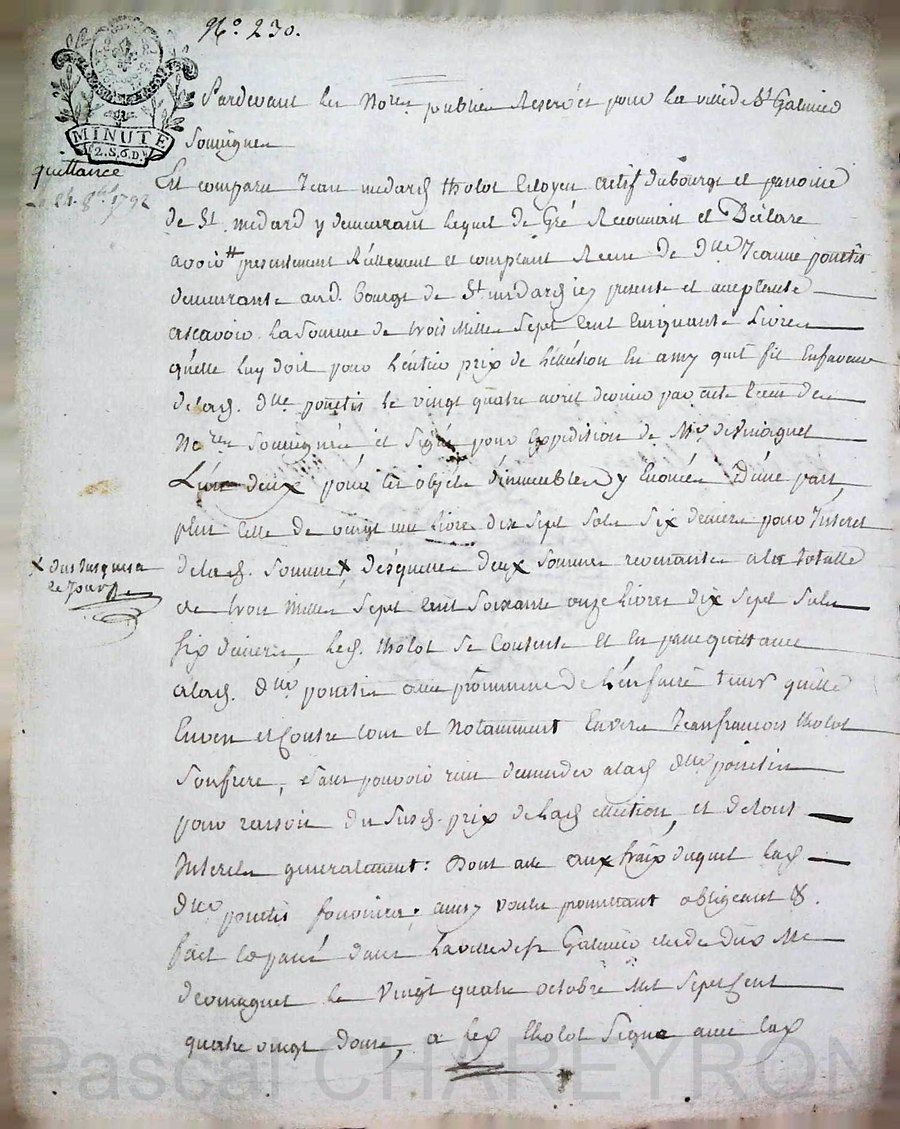 N.º 230.
MINUTE
12. S. 6. D.
Pardevant les No.res publics Reservés pour la ville de St Galmier
Soussignés
quittance
24. 8bre 1792
Est comparu Jean medard tholot Citoyen actif du bourg et paroisse
de St. medard y demeurant lequel de Gré Reconnait et Déclare
avoir presentement Réellement et comptant Receu de dlle Jeanne pontis
demeurante aud. bourg de St medard icy presente et acceptante
ascavoir la Somme de trois Mille Sept Cent Cinquante Livres
quelle luy doit pour L'entier prix de L'ellection En amy quil fit Enfaveur
delad. dlle pontis le vingt quatre avril dernier par acte Receu des
No.res Soussignés et Signé pour Expedition de Me
L'un deux pour les objets d'immeubles y Enoncés d'une part,
plus Celle de vingt une livre dix Sept Sols Six deniers pour Interet
x dus Jusques a
ce Jour
delad. Somme x desquelles deux Sommes revenantes a la totalle
de trois Mille Sept Cent Soixante onze Livres dix Sept Sols
Six deniers, led. tholot Se Contente Et En passe quittance
alad. dlle pontis avec promesse de L'en faire tenir quitte
Envers et Contre tous et Notamment Envers Jean francois tholot
Son frere, Sans pouvoir rien demander alad. dlle pontis
pour raison du Susd. prix de lad. ellection, et de tous
Interets generalement: Dont acte aux fraix duquel lad.
dlle pontis fournira; ainsy voulu promettant obligeant &.
fait Et passé dans la ville de St Galmier etude dud. Me
le Vingt quatre octobre Mil Sept Cent
quatre vingt douze, a led. tholot Signé avec lad.
Pascal CHAREYRON